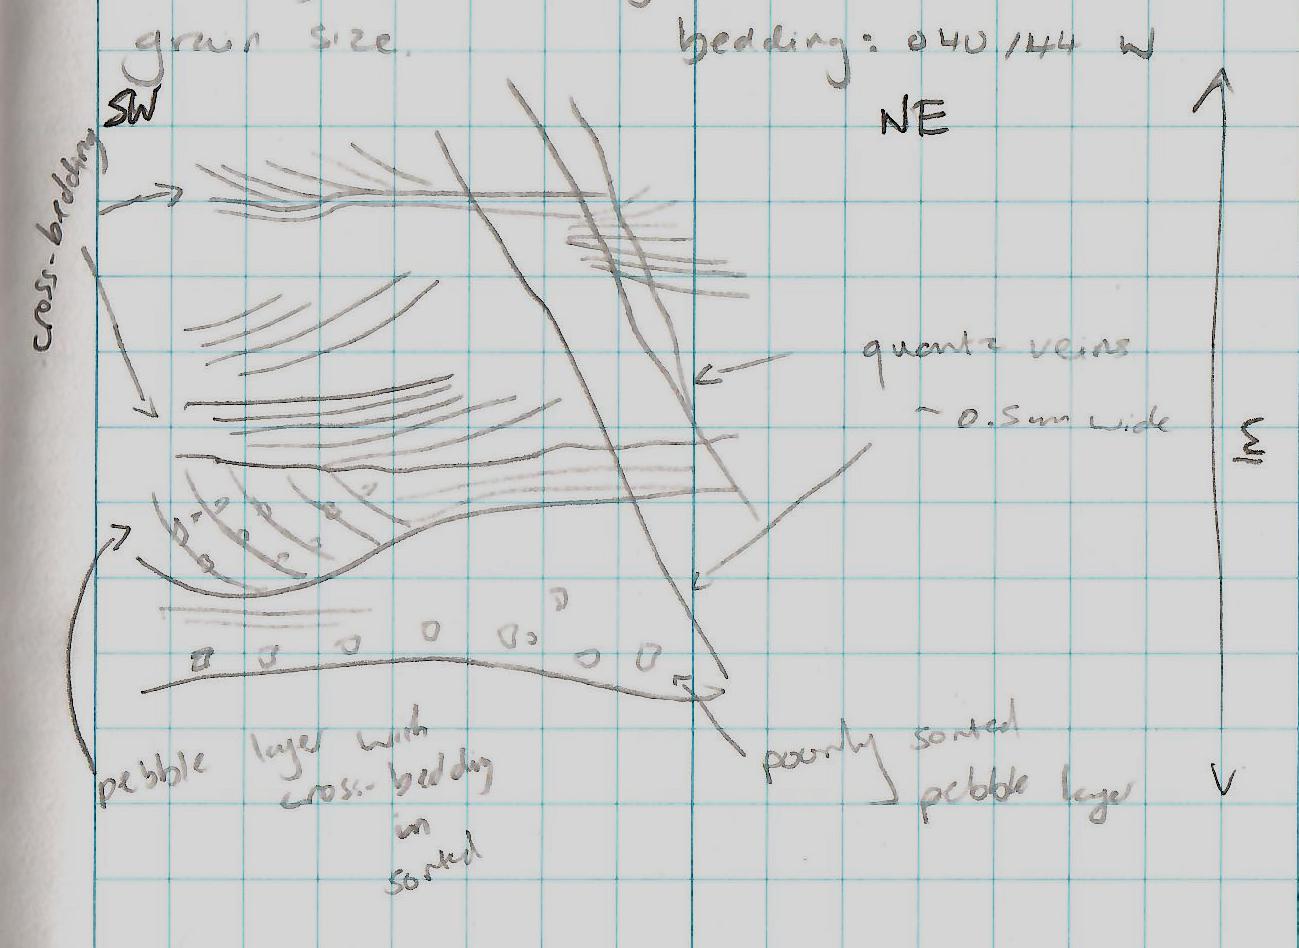 grain size.
bedding: 040/44 W
SW
NE
cross-bedding
quartz veins
~ 0.5mm wide
m
pebble layer with
cross-bedding
in
sorted
poorly sorted
pebble layer